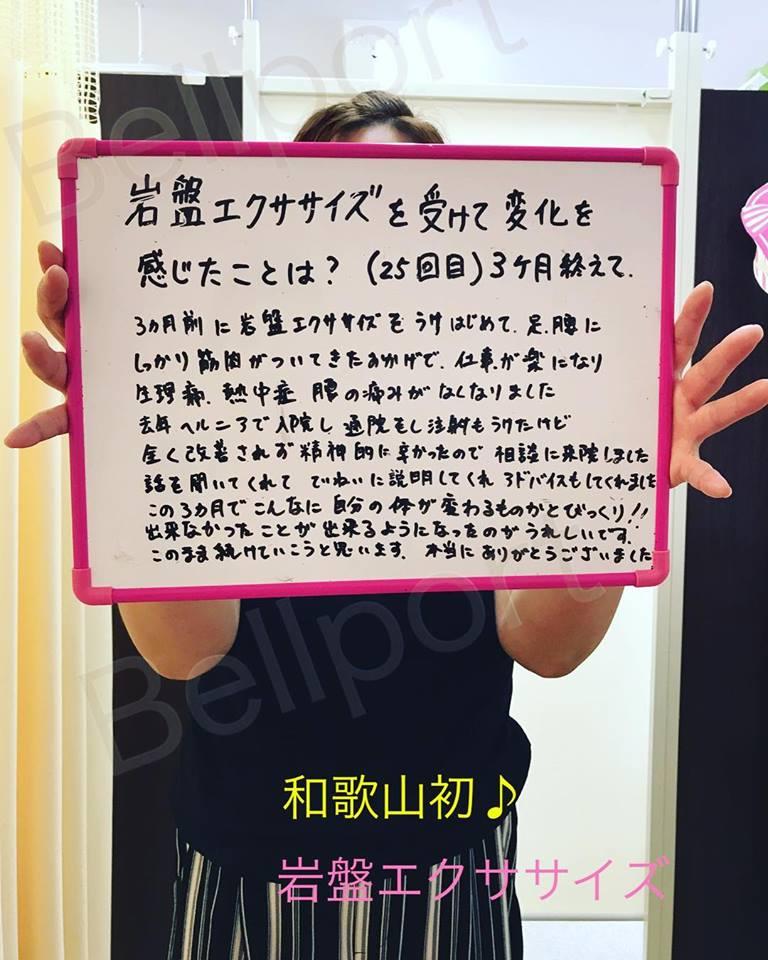 岩盤エクササイズを受けて変化を
感じたことは？(25回目)3ケ月終えて.
3ヵ月前に岩盤エクササイズをうけはじめて.足.腰に
しっかり筋肉がついてきたおかげで.仕事が楽になり
生理痛.熱中症 腰の痛みがなくなりました
去年ヘルニアで入院し通院もし注射もうけたけど
全く改善されず精神的に辛かったので相談に来院しました
話を聞いてくれて ていねいに説明してくれアドバイスもしてくれました
この3ヵ月でこんなに自分の体が変わるものかとびっくり!!
出来なかったことが出来るようになったのがうれしいです.
このまま続けていこうと思います.本当にありがとうございました
和歌山初♪
岩盤エクササイズ
Bellport
Bellport